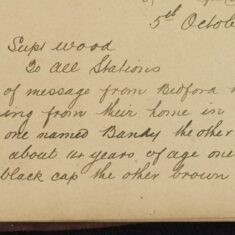 5th Octobe
Supt Wood
To All Stations
of message from Bedford
ing from their home in
one named Bandy the other
about 14 years of age one
black cap the other brown